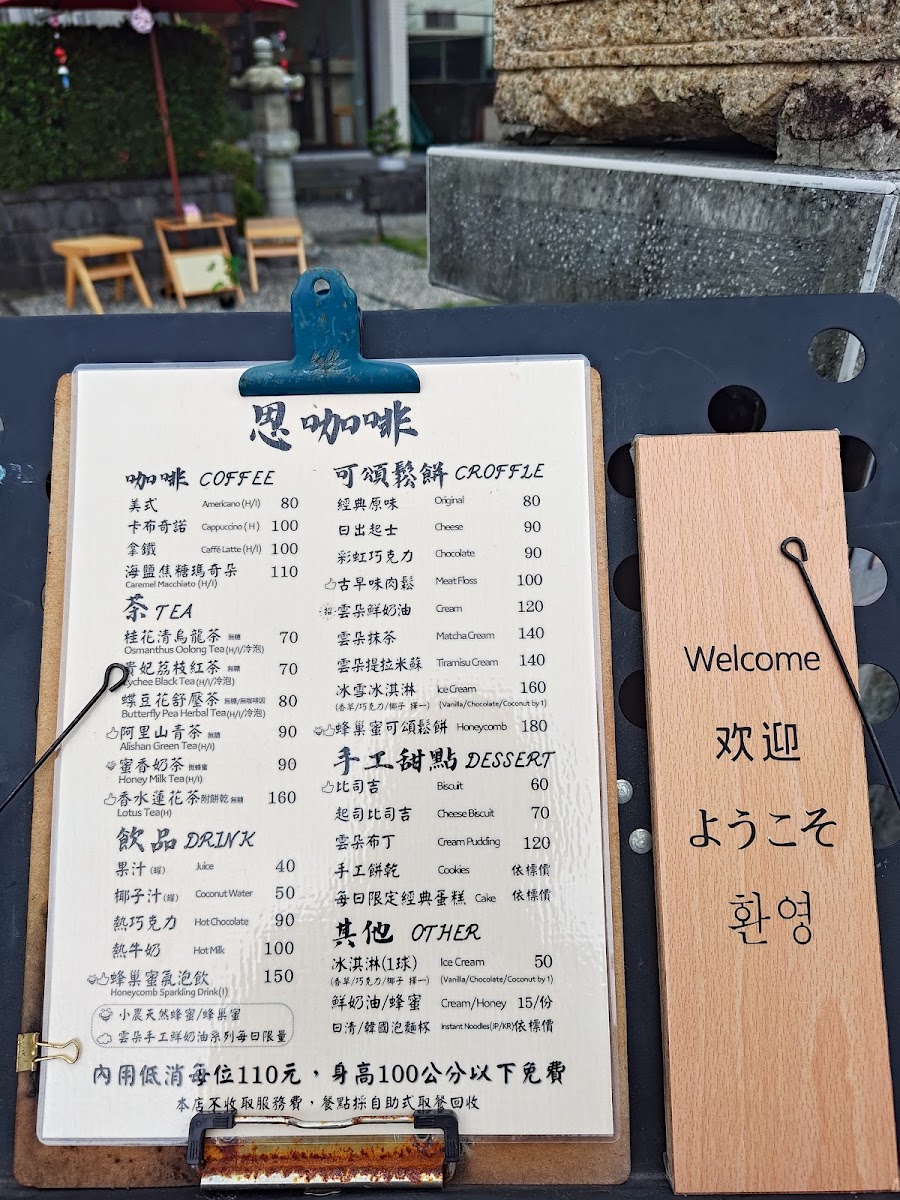 恩咖啡
咖啡 COFFEE
美式 Americano (H/I) 80
卡布奇諾 Cappuccino ( H ) 100
拿鐵 Caffé Latte (H/I) 100
海鹽焦糖瑪奇朵 110
Caramel Macchiato (H/I)
茶 TEA
桂花清烏龍茶 無糖 70
Osmanthus Oolong Tea(H/I/冷泡)
貴妃荔枝紅茶 無糖 70
Lychee Black Tea(H/I/冷泡)
蝶豆花舒壓茶 無糖/無咖啡因 80
Butterfly Pea Herbal Tea(H/I/冷泡)
阿里山青茶 無糖 90
Alishan Green Tea(H/I)
蜜香奶茶 微蜂蜜 90
Honey Milk Tea(H/I)
香水蓮花茶附餅乾 無糖 160
Lotus Tea(H)
飲品 DRINK
果汁(罐) Juice 40
椰子汁(罐) Coconut Water 50
熱巧克力 Hot Chocolate 90
熱牛奶 Hot Milk 100
蜂巢蜜氣泡飲 150
Honeycomb Sparkling Drink(I)
小農天然蜂蜜/蜂巢蜜
雲朵手工鮮奶油系列每日限量
可頌鬆餅 CROFFLE
經典原味 Original 80
日出起士 Cheese 90
彩虹巧克力 Chocolate 90
古早味肉鬆 Meat Floss 100
招 雲朵鮮奶油 Cream 120
雲朵抹茶 Matcha Cream 140
雲朵提拉米蘇 Tiramisu Cream 140
冰雪冰淇淋 Ice Cream 160
(香草/巧克力/椰子 擇一) (Vanilla/Chocolate/Coconut by 1)
蜂巢蜜可頌鬆餅 Honeycomb 180
手工甜點 DESSERT
比司吉 Biscuit 60
起司比司吉 Cheese Biscuit 70
雲朵布丁 Cream Pudding 120
手工餅乾 Cookies 依標價
每日限定經典蛋糕 Cake 依標價
其他 OTHER
冰淇淋(1球) Ice Cream 50
(香草/巧克力/椰子 擇一) (Vanilla/Chocolate/Coconut by 1)
鮮奶油/蜂蜜 Cream/Honey 15/份
日清/韓國泡麵杯 Instant Noodles(JP/KR)依標價
內用低消每位110元，身高100公分以下免費
本店不收取服務費，餐點採自助式取餐回收
Welcome
欢迎
ようこそ
환영